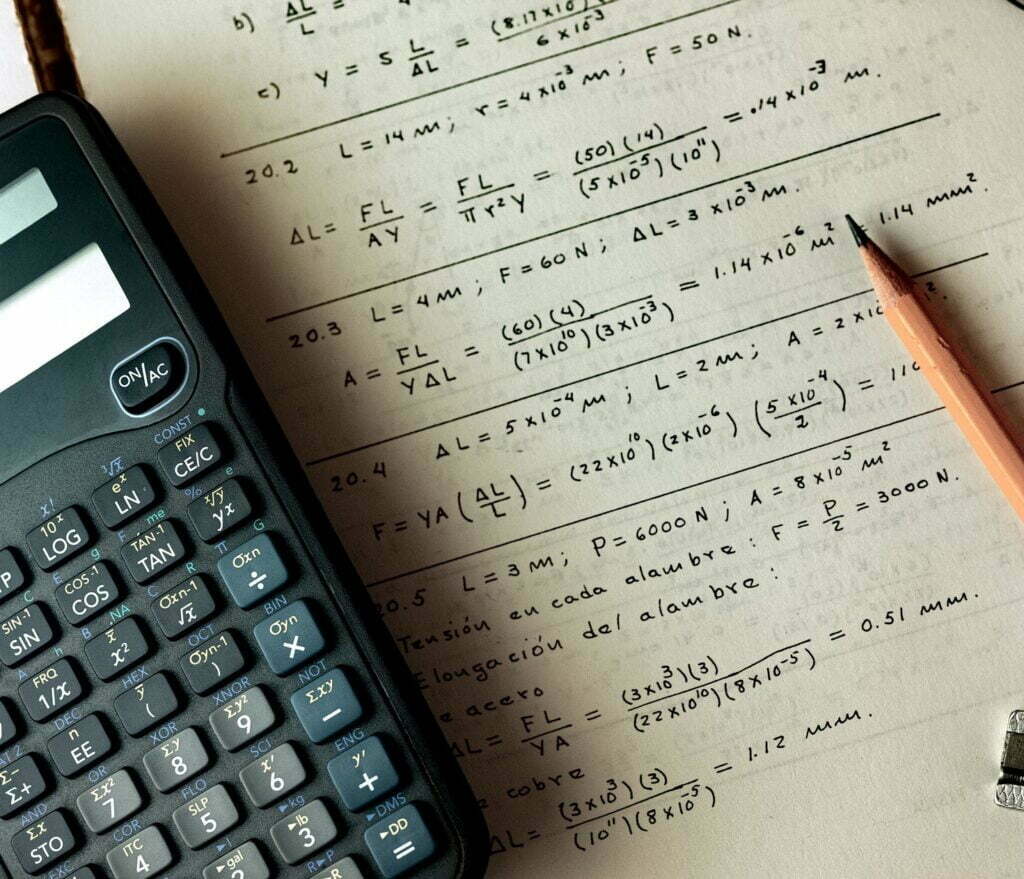 b) ΔL/L =
c) Y = 5 L/ΔL = (8.17×10 / 6×10⁻³
20.2 L = 14 m; r = 4×10⁻³ m; F = 50 N.
ΔL = FL/AY = FL/πr²Y = (50)(14)/(5×10⁻⁵)(10¹¹) = .14×10⁻³ m.
20.3 L = 4 m; F = 60 N; ΔL = 3×10⁻³ m.
A = FL/YΔL = (60)(4)/(7×10¹⁰)(3×10⁻³) = 1.14×10⁻⁶ m² 1.14 mm².
20.4 ΔL = 5×10⁻⁴ m; L = 2 m; A = 2×10 ².
F = YA(ΔL/L) = (22×10¹⁰)(2×10⁻⁶)(5×10⁻⁴/2) = 110
0.5 L = 3 m; P = 6000 N; A = 8×10⁻⁵ m²
Tensión en cada alambre: F = P/2 = 3000 N.
Elongación del alambre:
e acero
ΔL = FL/YA = (3×10³)(3)/(22×10¹⁰)(8×10⁻⁵) = 0.51 mm.
cobre
ΔL = (3×10³)(3)/(10¹¹)(8×10⁻⁵) = 1.12 mm.
ON/AC
CONST
FIX
CE/C
³√x
eˣ
LN
% e
x/y
yx
x!
10ˣ
LOG
F me
TAN⁻¹
TAN
π G
σxn
÷
P
E g
COS⁻¹
COS
R
σxn-1
√x
BIN
σyn
×
C
SIN⁻¹
SIN
B NA
x̄
x²
OCT
σyn-1
)
NOT
Σxy
−
A h
FRQ
1/x
HEX
ȳ
(
XNOR
Σy²
9
ENG
y'
+
DEC
n
EE
XOR
Σy
8
SCI
x'
6
▸DMS
▸DD
=
Σ−
Σ+
OR
Σx²
7
FLO
SLP
5
▸kg
▸lb
3
AND
Σx
STO
COR
ITC
4
▸l
▸gal
2
R▸P